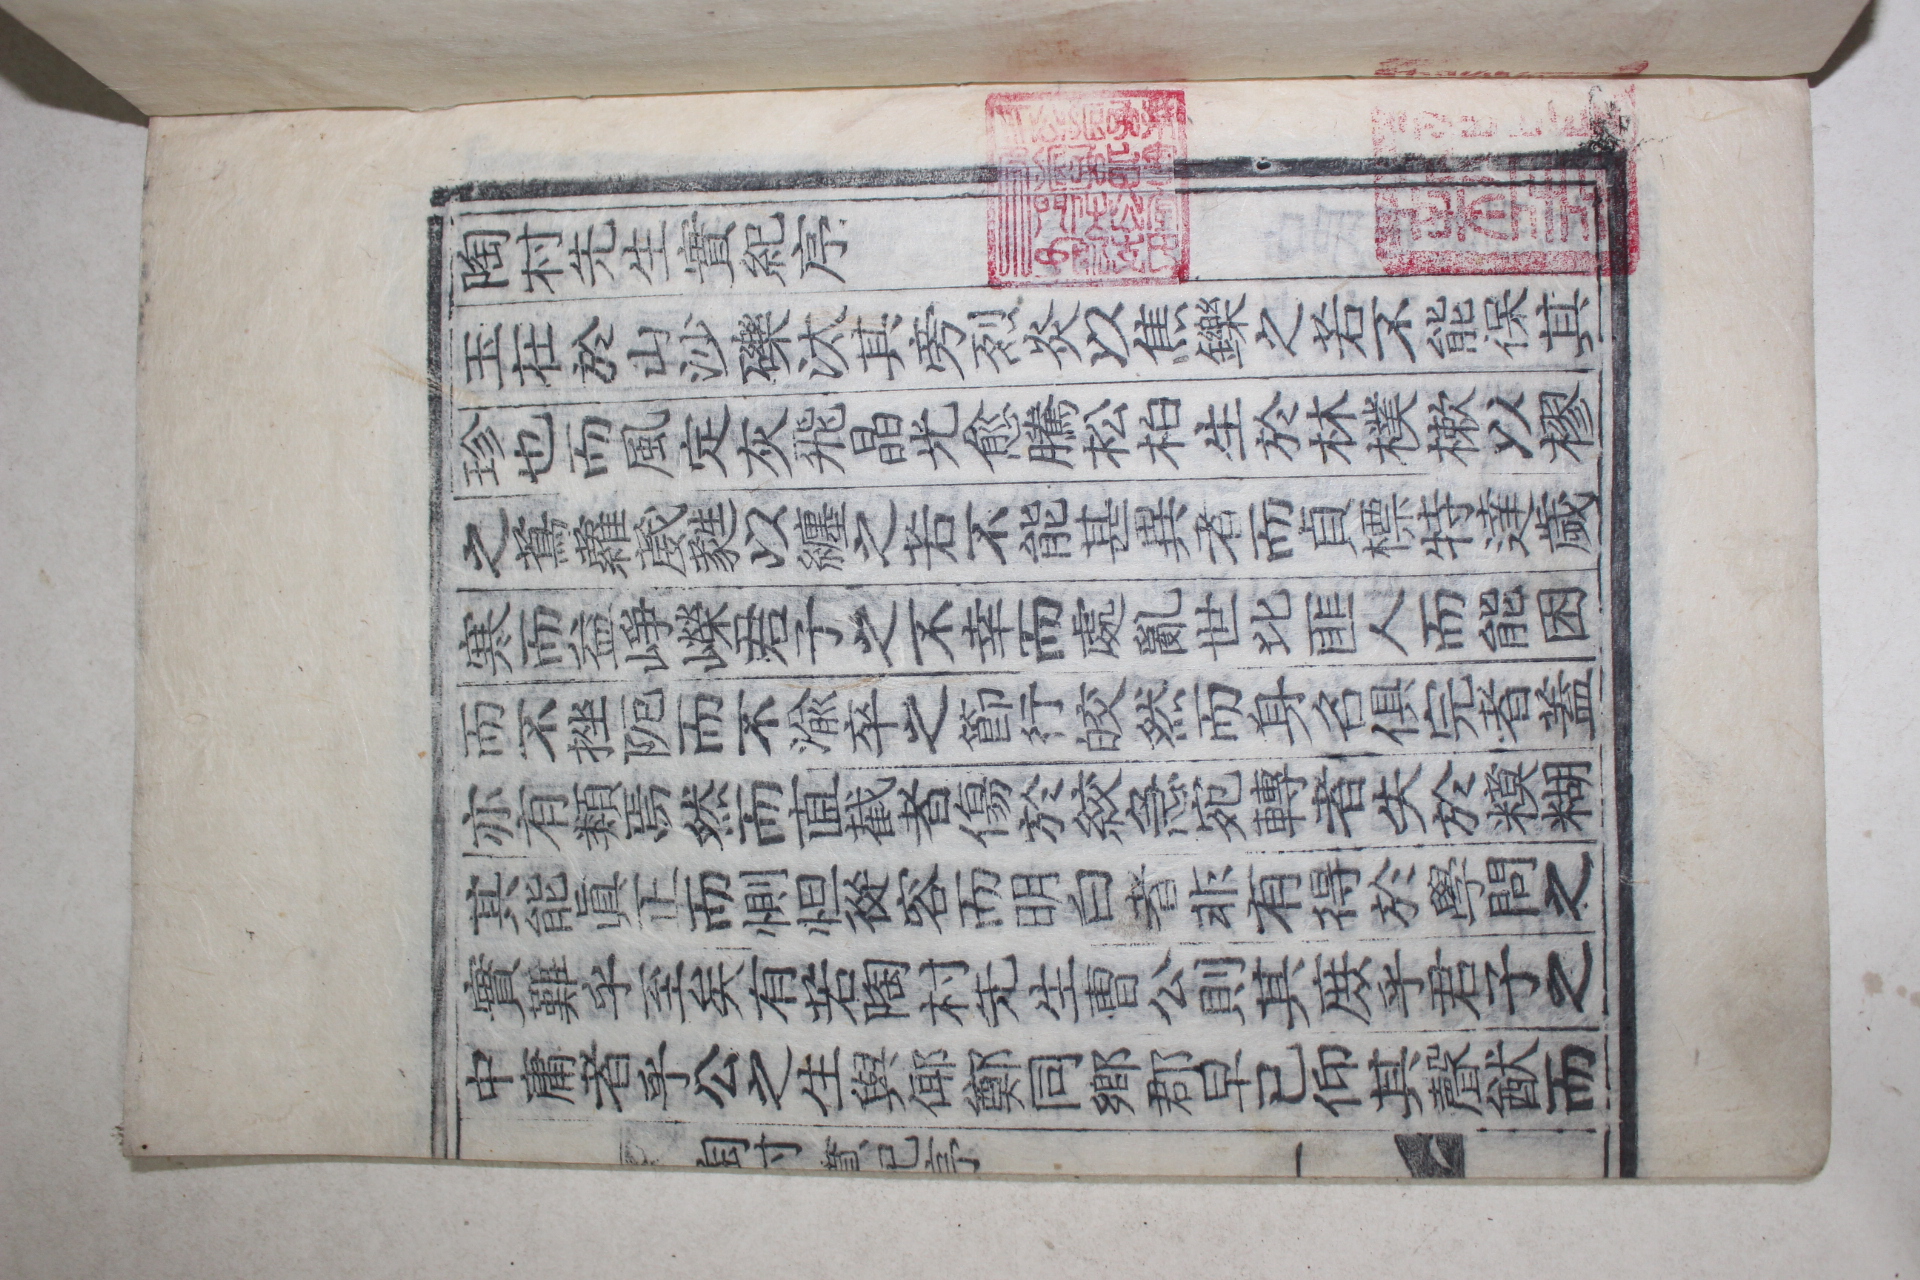 陶村先生實紀序
玉在於山沙礫汰其旁烈炎以焦鑠之若不能保其
珍也而風定灰飛晶光愈騰松柏生於林樸樕以樛
之蔦蘿蔑雖以纏之若不能甚異者而貞標特達歲
寒而益崢嶸君子之不幸而處亂世比匪人而能困
而不挫阨而不渝卒之節行皎然而身名俱完者蓋
亦有類焉然而直截者傷於絞急宛轉者失於糢糊
其能眞正而惻怛從容而明白者非有得於學問之
實難乎至矣有若陶村先生曺公則其庶乎君子之
中庸者乎公之生與仰鄭同鄉郡早已仰其聲猷而
陶村實紀序 一